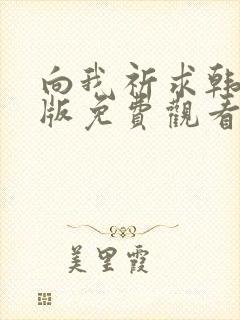 向我祈求韩
版免費觀看
美里霞